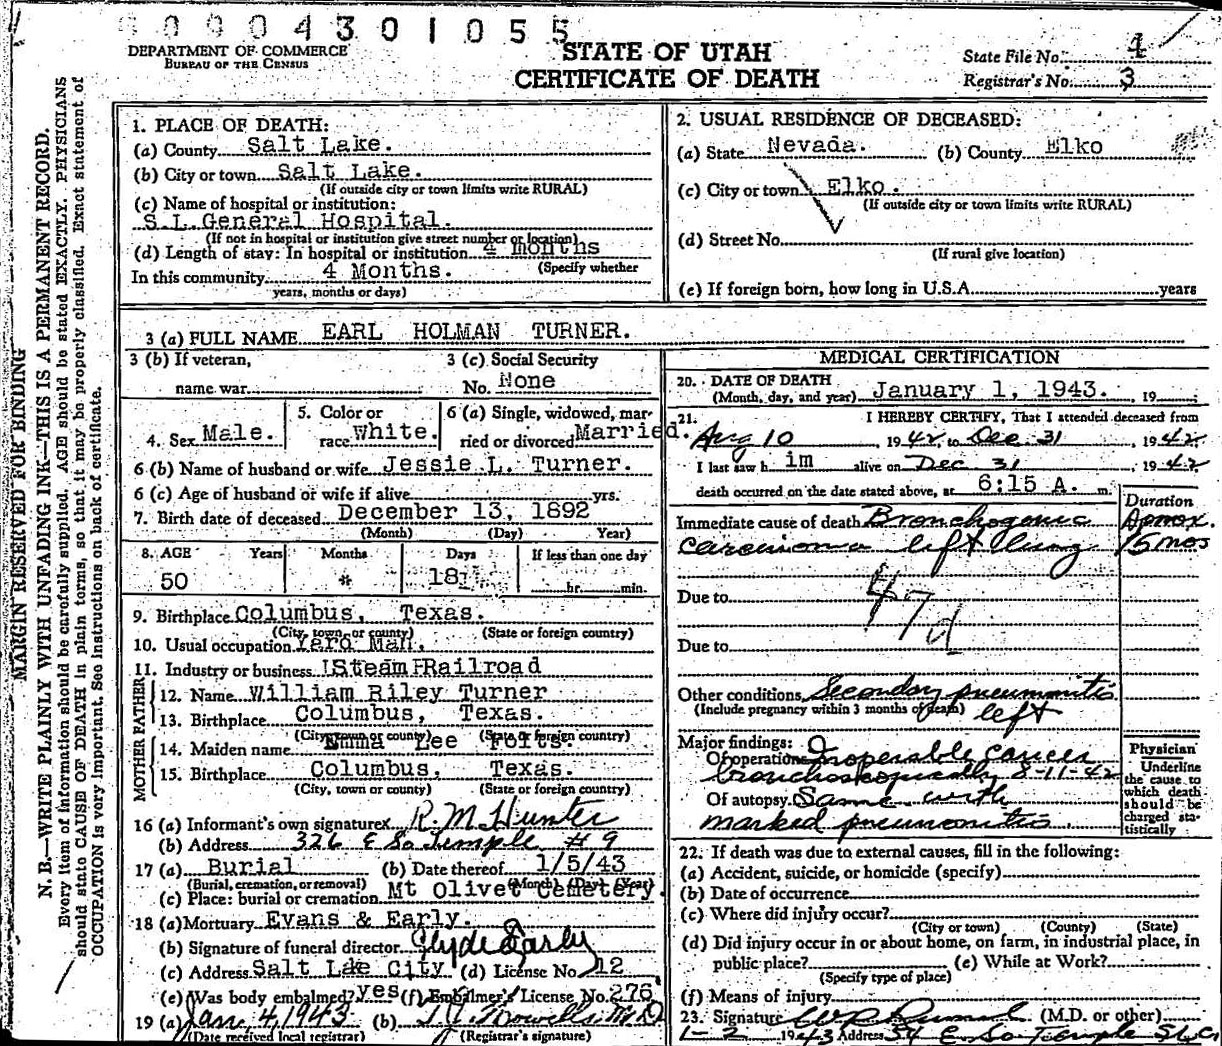 00004301055
DEPARTMENT OF COMMERCE
BUREAU OF THE CENSUS
STATE OF UTAH
CERTIFICATE OF DEATH
State File No. 4
Registrar's No. 3
MARGIN RESERVED FOR BINDING
N. B.—WRITE PLAINLY WITH UNFADING INK—THIS IS A PERMANENT RECORD.
Every item of information should be carefully supplied. AGE should be stated EXACTLY. PHYSICIANS
should state CAUSE OF DEATH in plain terms, so that it may be properly classified. Exact statement of
OCCUPATION is very important. See instructions on back of certificate.
1. PLACE OF DEATH:
(a) County Salt Lake.
(b) City or town Salt Lake.
(If outside city or town limits write RURAL)
(c) Name of hospital or institution:
S.L. General Hospital.
(If not in hospital or institution give street number or location)
(d) Length of stay: In hospital or institution 4 months
(Specify whether
In this community 4 Months.
years, months or days)
2. USUAL RESIDENCE OF DECEASED:
(a) State Nevada. (b) County Elko
(c) City or town Elko.
(If outside city or town limits write RURAL)
(d) Street No.
(If rural give location)
(e) If foreign born, how long in U.S.A. years
3 (a) FULL NAME EARL HOLMAN TURNER.
3 (b) If veteran,
name war
3 (c) Social Security
No. None
4. Sex Male.
5. Color or
race White.
6 (a) Single, widowed, mar-
ried or divorced Married.
6 (b) Name of husband or wife Jessie L. Turner.
6 (c) Age of husband or wife if alive yrs.
7. Birth date of deceased December 13, 1892
(Month) (Day) Year)
8. AGE Years Months Days If less than one day
50 18 hr. min.
9. Birthplace Columbus, Texas.
(City, town or county) (State or foreign country)
10. Usual occupation Yard Man.
11. Industry or business Steam Railroad
FATHER
12. Name William Riley Turner
13. Birthplace Columbus, Texas.
(City, town or county) (State or foreign country)
MOTHER
14. Maiden name Emma Lee
15. Birthplace Columbus, Texas.
(City, town or county) (State or foreign country)
16 (a) Informant's own signature x R. M. Hunter
(b) Address 326 E So Temple #9
17 (a) Burial (b) Date thereof 1/5/43
(Burial, cremation, or removal) (Month) (Day) (Year)
(c) Place: burial or cremation Mt Olivet Cemetery.
18 (a) Mortuary Evans & Early.
(b) Signature of funeral director Clyde Early
(c) Address Salt Lae City (d) License No. 12
(e) Was body embalmed? yes (f) Embalmer's License No. 276
19 (a) Jan. 4, 1943 (b)
(Date received local registrar) (Registrar's signature)
MEDICAL CERTIFICATION
20. DATE OF DEATH
(Month, day, and year) January 1, 1943. , 19
21. I HEREBY CERTIFY, That I attended deceased from
Aug 10 , 1942, to Dec 31 , 1942
I last saw h im alive on Dec 31 , 1942
death occurred on the date stated above, at 6:15 A. m.
Duration
Immediate cause of death Bronchogenic
carcinoma left lung
Aprox.
15 mos
Due to
47d
Due to
Other conditions Secondary pneumonitis
(Include pregnancy within 3 months of death) left
Major findings:
Of operations Inoperable cancer
bronchoscopically 8-11-42
Of autopsy Same with
marked pneumonitis
Physician
Underline
the cause to
which death
should be
charged sta-
tistically
22. If death was due to external causes, fill in the following:
(a) Accident, suicide, or homicide (specify)
(b) Date of occurrence
(c) Where did injury occur?
(City or town) (County) (State)
(d) Did injury occur in or about home, on farm, in industrial place, in
public place? (e) While at Work?
(Specify type of place)
(f) Means of injury
23. Signature (M.D. or other)
1-2 1943 Address 54 E So Temple